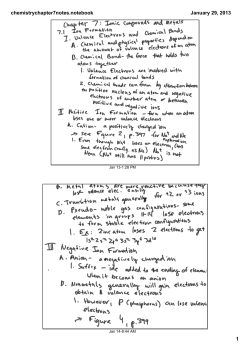 chemistrychapter7notes.notebook
January 29, 2013
Chapter 7: Ionic Compounds and Metals
7.1 Ion Formation
I. Valence Electrons and Chemical Bonds
A. Chemical and physical properties depend on
the amount of valence electrons of an atom
B. Chemical Bond- the force that holds two
atoms together
1. Valence Electrons are involved with
formation of chemical bonds
2. Chemical bonds can form by
positive nucleus of an atom and negative
electrons of another atom or between
positive and negative ions
II Positive Ion Formation - form when an atom
loses one or more valence electrons
A. Cation- a positively charged ion
→ see Figure 2, p.397 for Na° and Na
1. Even though
loses an electron,
some electron config as Ne)
is not
Neon (Na⁺ still has 11 protons)
Jan 13-1:28 PM
B. Metal atoms are more reactive because they
lose valence elec. easily
C. Transition metals generally
+2 or +3 ions
D. Pseudo-noble gas configurations- some
elements in groups
lose electrons
to form stable electron configurations
1. Ex: Zinc atom loses 2 electrons to get
1s²2s²2p⁶3s²3p⁶3d¹⁰
III Negative Ion Formation
A. Anion- a negatively charged ion
1. Suffix -ide added to the ending of element
when it becomes an anion
B. Nonmetals generally will gain electrons to
obtain 8 valence electrons
1. However, P (phosphorus) can lose valence
electrons
→ Figure 4, p.399
Jan 14-8:44 AM
1